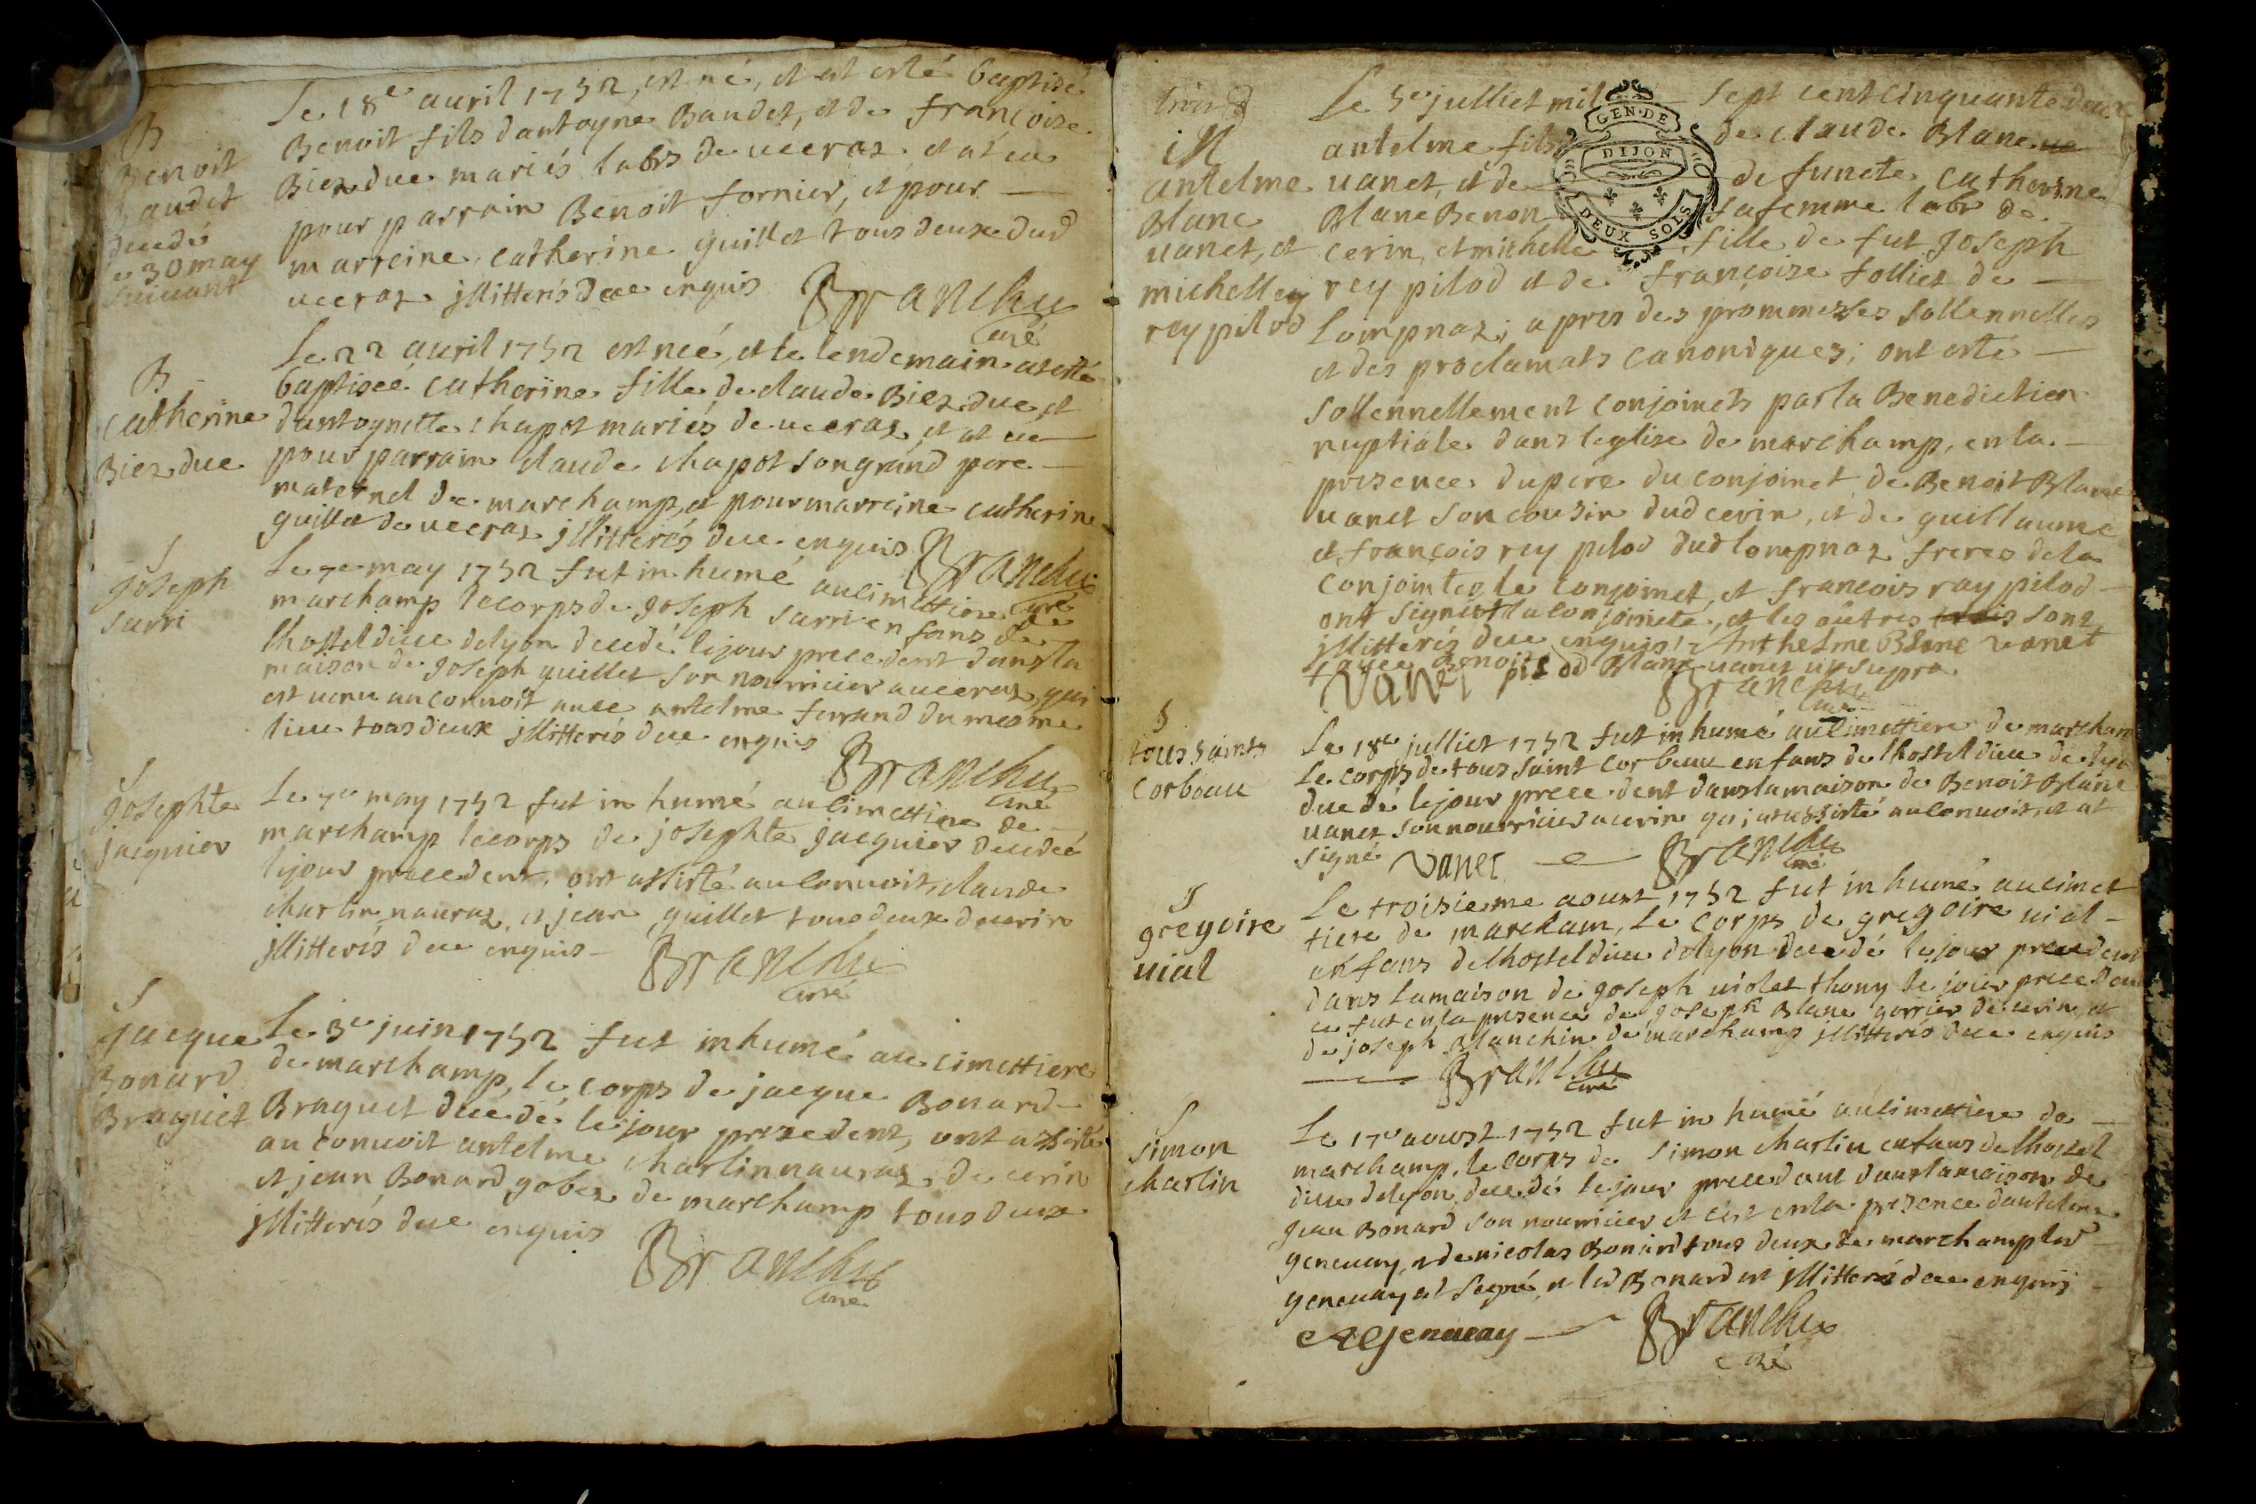 B
Benoit
Baudet
decedé
le 30 may
suiuant
Le 18e auril 1752, est né, et at esté baptisé
Benoit fils dantoyne Baudet, et de françoise
Biez due mariés labrs de ueeraz. et at eu
pour parrain Benoit fornier, et pour
marreine, catherine guillet tous deux dud
ueeraz jllitterés de ce enquis Branchu
curé
B
catherine
Biez due
Le 22 auril 1752 est neé, et le lendemain at esté
baptiseé catherine fille de claude Biez due et
dantoynette chapot mariés de ueeraz, et at eu
pour parrain claude chapot son grand pere
maternel de marchamp, et pour marreine catherine
guillet de ueeraz jllitterés de ce enquis Branchu
curé
J
joseph
surri
Le 7e may 1752 fut inhumé au cimettiere de
marchamp le corps de joseph surri enfans de
lhosteldieu delyon decedé le jour precedent dans la
maison de joseph guillet son nourricier aueeraz, qui
est uenu au conuoit auec antelme ferrand du mesme
lieu tous deux jllitterés de ce enquis Branchu
curé
J
josephte
jacquier
Le 7e may 1752 fut inhumé au cimettiere de
marchamp le corps de josephte jacquier decedeé
le jour precedent. ont assisté au conuoit, claude
charlin nauraz, et jean guillet tous deux de cerin
jllitterés de ce enquis – Branchu
curé
J
jacque
Bonard
Braguet
Le 3e juin 1752 fut inhumé au cimettiere
de marchamp, le corps de jacque Bonard
Braguet decedé le jour presedent, ont assisté
au conuoit antelme charlin nauraz, de cerin
et jean Bonard gobez de marchamp tous deux
jllitterés de ce enquis
Branchu
curé
M
antelme
Blanc
uanet, et
michelle
rey pilod
Le 5e julliet mil sept cent cinquante deux
GEN·DE
DIJON
DEUX SOLS
antelme fils de claude Blanc
uanet, et de defuncte catherine
Blanc Benon sa femme labr de
cerin, et michelle fille de fut joseph
rey pilod et de françoise folliet de
Lompnaz; apres des prommesses sollennelles
et des proclamats canoniques; ont esté
sollennellement conjoincts par la Benediction
nuptiale dans leglise de marchamp, en la
presence du pere du conjoinct, de Benoit Blanc
uanet son cousin dud cerin, et de guillaume
et françois rey pilod dud lompnaz freres dela
conjointe, le conjoinct, et francois ray pilod
ont signés la conjoincte, et les aûtres sont
jllitterés de ce enquis Anthelme Blanc vanet
Benoit Blanc uanet ut supra
Vanet pilod Branchu
curé
J
toussaints
Corbeau
Le 18e julliet 1752 fut inhumé au cimettiere de marchamp
le corps de tous saint Corbeau enfans de lhosteldieu de lyon
decedé le jour precedent dans la maison de Benoit Blanc
uanet son nourricier acerin qui at assisté au conuoit, et at
signé Vanet Branchu
curé
J
gregoire
uial
Le troisieme aoust 1752 fut inhumé au cimet
tiere de marcham, le corps de gregoire uial
enfans delhosteldieu delyon decedé le jour precedent
dans la maison de joseph uiolet thony le jour precedent
ce fut en la presence de joseph Blanc gorrier de cerin, et
de joseph Blanchin de marchamp jllitterés de ce enquis
Branchu
curé
J
Simon
charlin
Le 17e aoust 1752 fut inhumé au cimettiere de
marchamp, le corps de Simon charlin enfans delhostel
dieu delyon, decedé le jour precedent dans la maison de
jean Bonard son nourricier et c'est en la presence dantelme
geneuay, et de nicolas Bonard tous deux de marchamp led
geneuay at signé, et led Bonard est jllitteré de ce enquis
A Genueay Branchu
curé